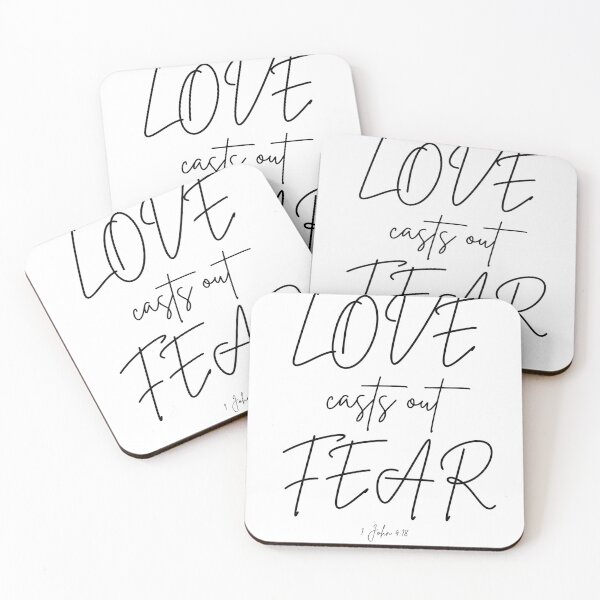 LOVE
casts out
LOVE
casts out
FEAR
LOVE
casts out
FEAR
1 John
LOVE
casts out
FEAR
1 John 4:18